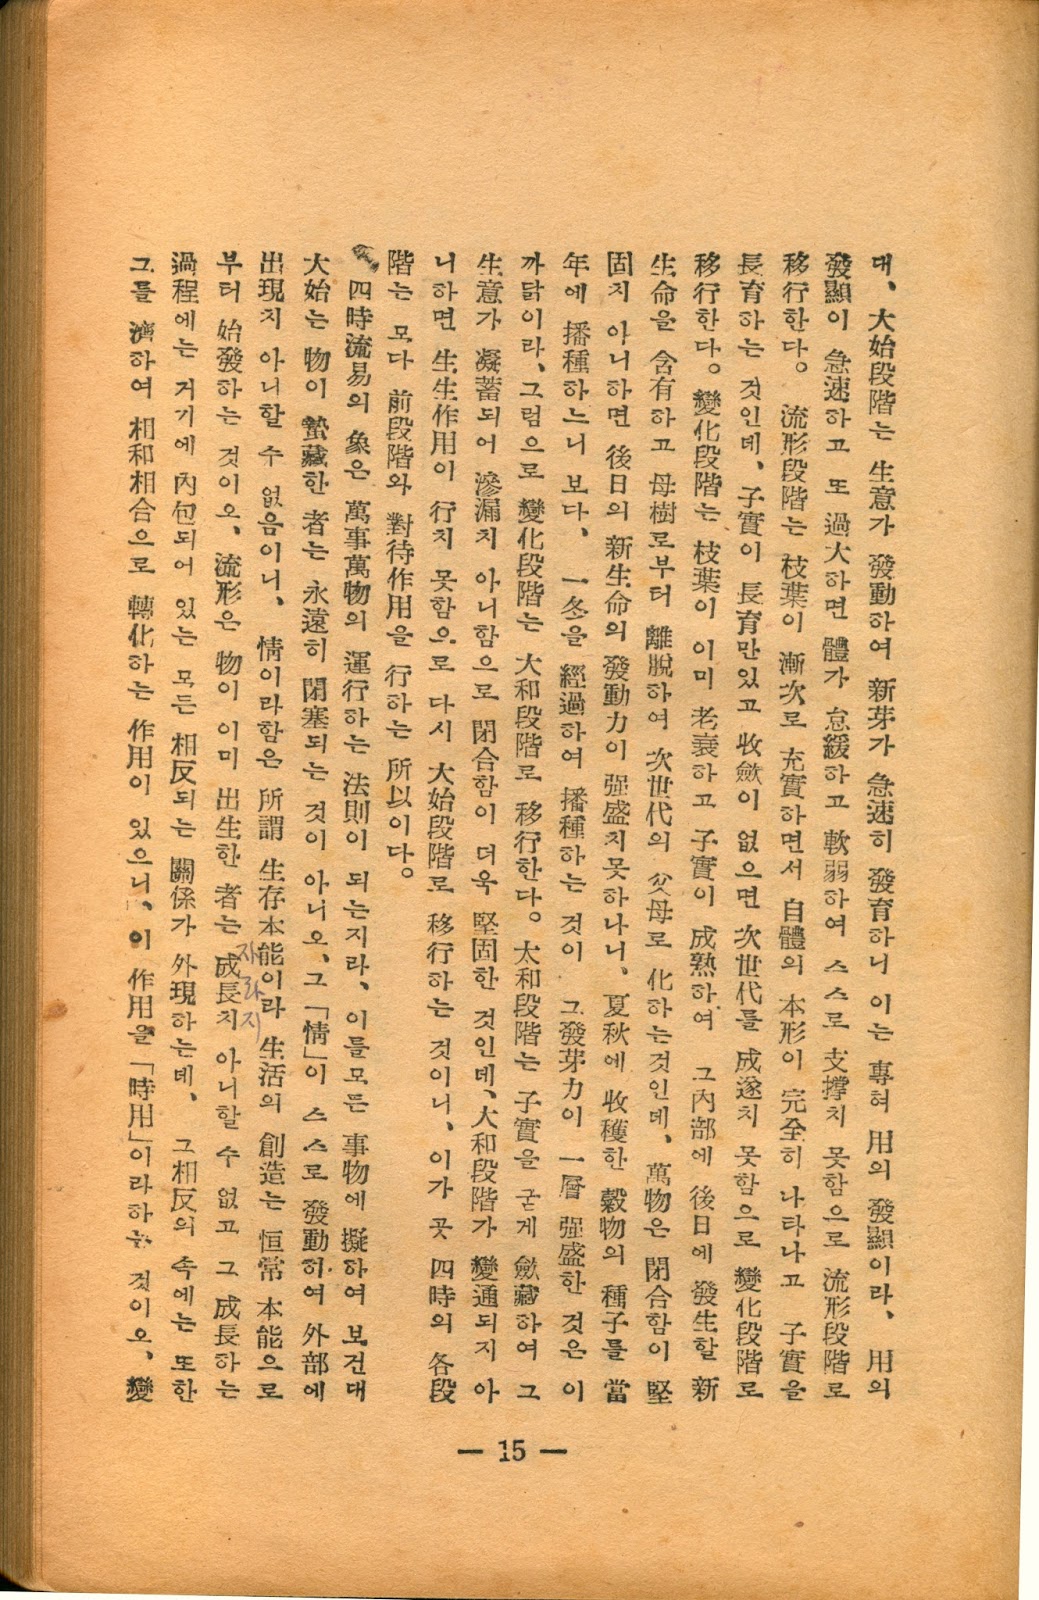 대、大始段階는 生意가 發動하여 新芽가 急速히 發育하니 이는 專혀 用의 發顯이라、 用의
發顯이 急速하고 또 過大하면 體가 怠緩하고 軟弱하여 스스로 支撐치 못함으로 流形段階로
移行한다。 流形段階는 枝葉이 漸次로 充實하면서 自體의 本形이 完全히 나타나고 子實을
長育하는 것인데、子實이 長育만있고 收斂이 없으면 次世代를 成遂치 못함으로 變化段階로
移行한다。變化段階는 枝葉이 이미 老衰하고 子實이 成熟하여 그內部에 後日에 發生할 新
生命을 含有하고 母樹로부터 離脫하여 次世代의 父母로 化하는것인데、萬物은 閉合함이 堅
固치 아니하면 後日의 新生命의 發動力이 强盛치못하나니、夏秋에 收穫한 穀物의 種子를 當
年에 播種하느니 보다、 一冬을 經過하여 播種하는 것이 그發芽力이 一層 强盛한 것은 이
까닭이라、그럼으로 變化段階는 大和段階로 移行한다。太和段階는 子實을 굳게 斂藏하여 그
生意가 凝蓄되어 滲漏치 아니함으로 閉合함이 더욱 堅固한 것인데、大和段階가 變通되지 아
니하면 生生作用이 行치 못함으로 다시 大始段階로 移行하는 것이니、이가 곳 四時의 各段
階는 모다 前段階와 對待作用을 行하는 所以이다。
四時流易의 象은 萬事萬物의 運行하는 法則이 되는지라、이를모든 事物에 擬하여 보건대
大始는 物이 蟄藏한 者는 永遠히 閉塞되는 것이 아니오、그「情」이 스스로 發動하여 外部에
出現치 아니할 수 없음이니、 情이라함은 所謂 生存本能이라 生活의 創造는 恒常 本能으로
부터 始發하는 것이오、流形은 物이 이미 出生한 者는 成長치 아니할 수 없고 그 成長하는
자라지
過程에는 거기에 內包되어 있는 모든 相反되는 關係가 外現하는데、 그相反의 속에는 또한
그를 濟하여 相和相合으로 轉化하는 作用이 있으니、이 作用을「時用」이라하는 것이오、變
— 15 —